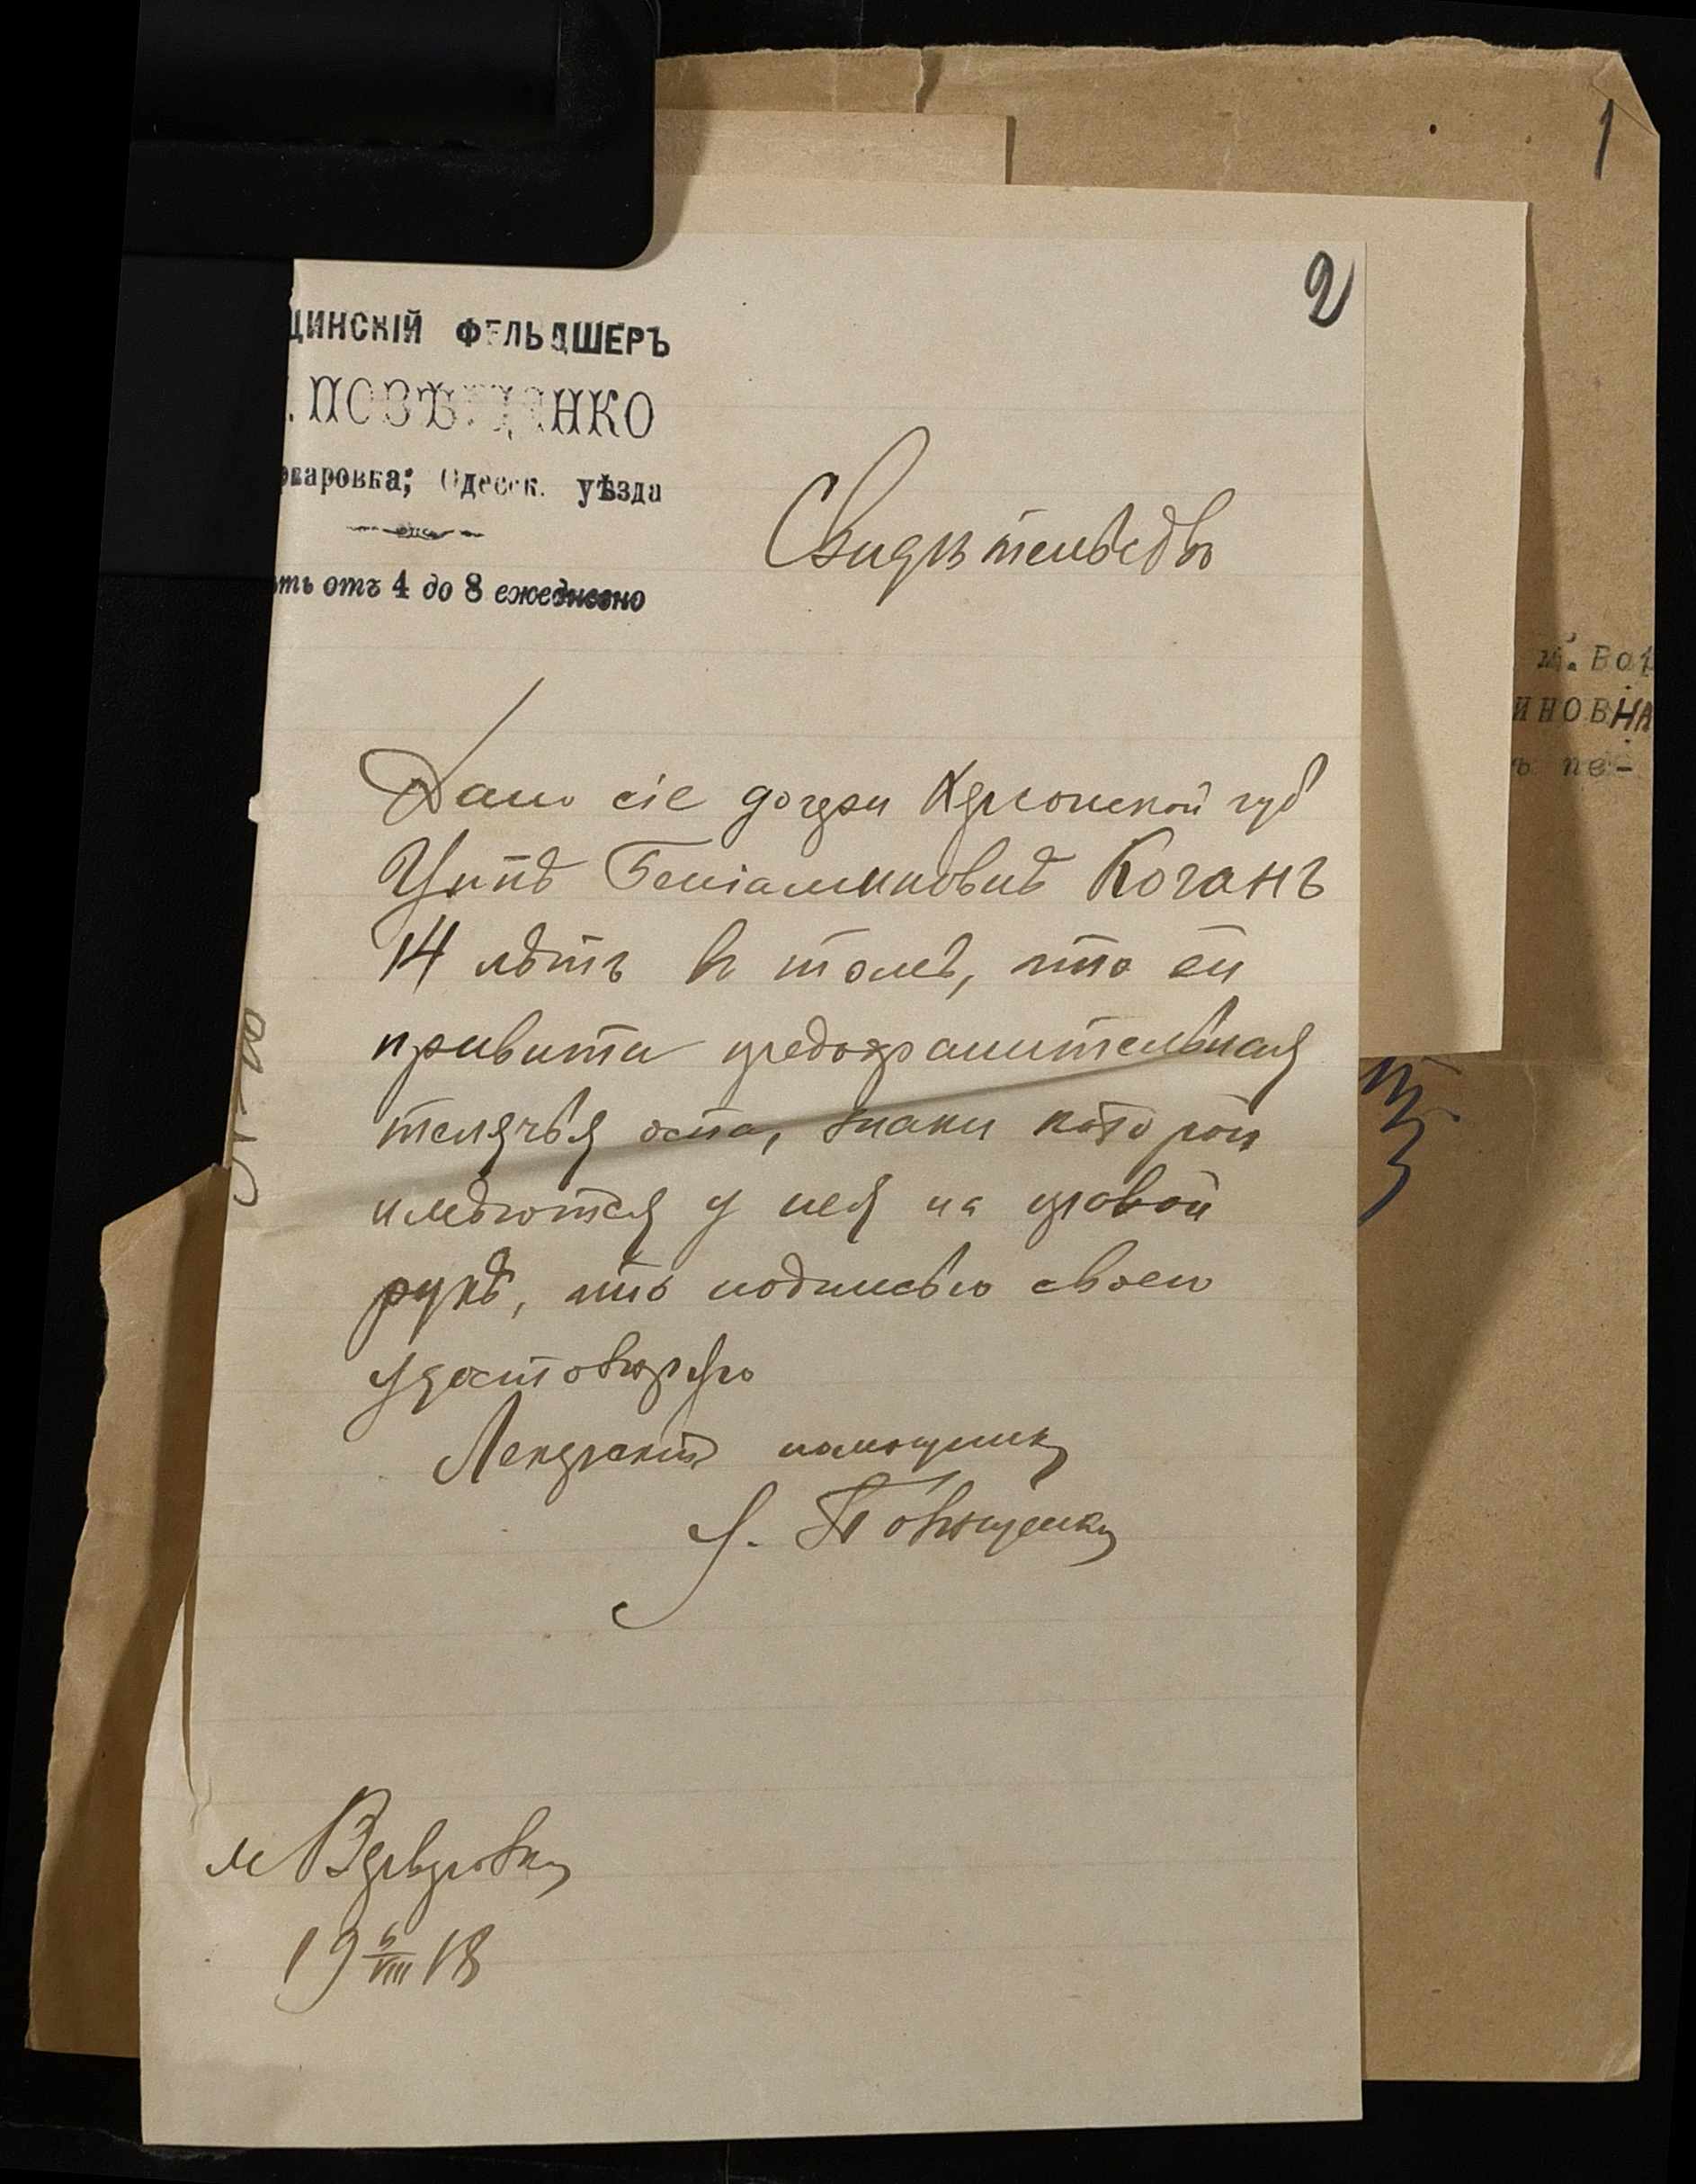 2
1
ЦИНСКІЙ ФЕЛЬДШЕРЪ
. ПОВѢЩЕНКО
Одесск. уѣзда
ть отъ 4 до 8 ежедневно
Свидѣтельство
Дано сіе дочери Херсонской губ
Ципѣ Беніаминовнѣ Коганъ
14 лѣтъ в томъ, что ей
привита предохранительная
телячья оспа, знаки которой
имѣются у нея на правой
рукѣ, что подписью своею
удостовѣряю
Лекарскій помощникъ
Повѣщенко
м
19 VIII 18
м. Воз
ИНОВНА
ъ пе-